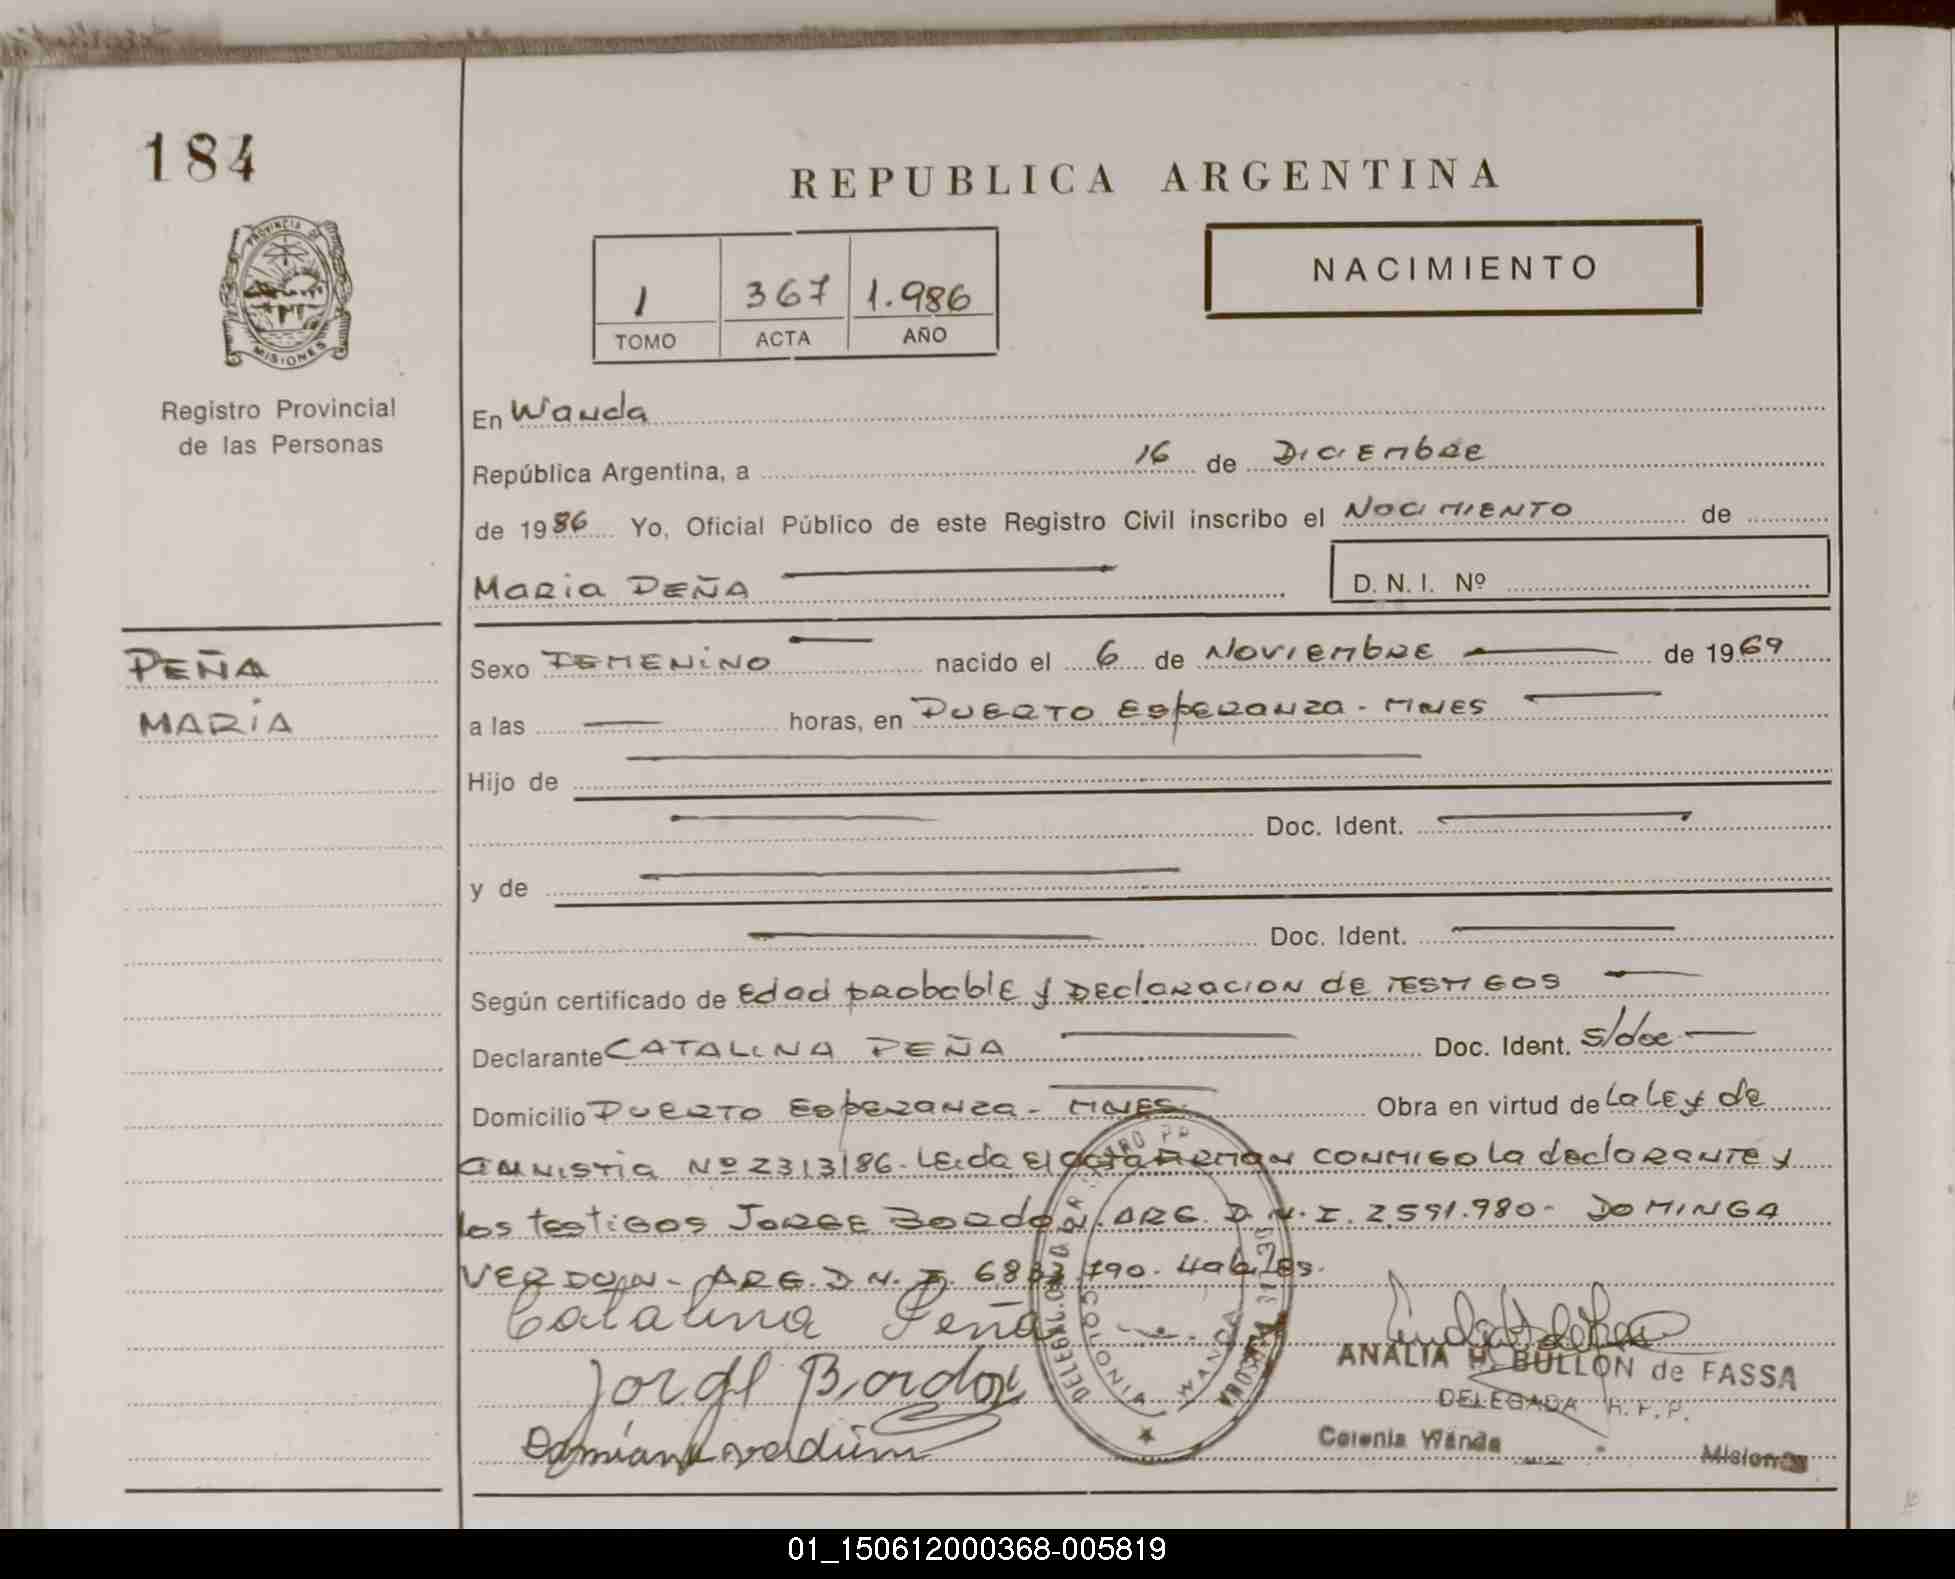 184
REPUBLICA ARGENTINA
PROVINCIA DE
MISIONES
Registro Provincial
de las Personas
1 367 1.986
TOMO ACTA AÑO
NACIMIENTO
En Wanda
República Argentina, a 16 de Diciembre
de 1986 Yo, Oficial Público de este Registro Civil inscribo el Nacimiento de
Maria PEÑA
D. N. I. Nº
PEÑA
MARIA
Sexo FEMENINO nacido el 6 de Noviembre de 1969
a las horas, en PUERTO Esperanza - MNES
Hijo de
Doc. Ident.
y de
Doc. Ident.
Según certificado de Edad probable y Declaracion de TESTIGOS
Declarante CATALINA PEÑA Doc. Ident. s/doc
Domicilio PUERTO Esperanza - MNES. Obra en virtud de La Ley de
amnistia Nº 2313/86. Leida el acta FIRMAN CONMIGO La declarante y
los testigos JORGE Bordon. ARG. D.N.I. 2.591.980- DOMINGA
VERDUN - ARG. D.N.I. 790. Habiles.
Catalina Peña
Jorge Bordon
COLONIA WANDA
ANALIA H. BULLON de FASSA
DELEGADA R. P. P.
Colonia Wanda Misiones
01_150612000368-005819